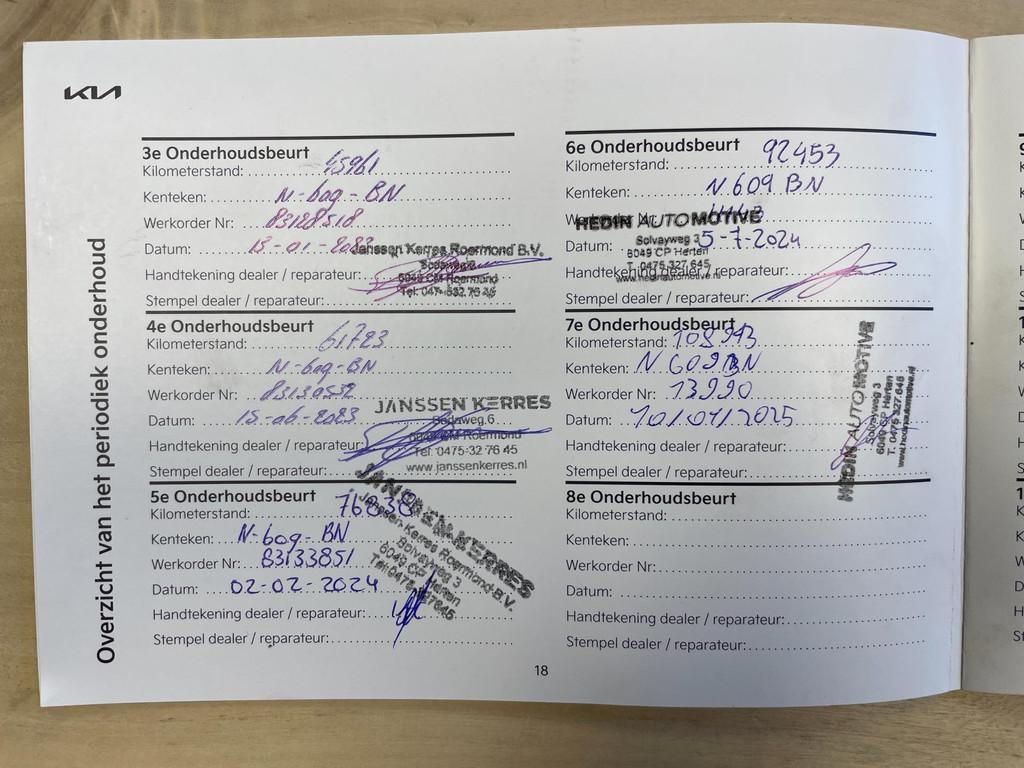 KIA
Overzicht van het periodiek onderhoud
3e Onderhoudsbeurt
Kilometerstand: 45961
Kenteken: N-609-BN
Werkorder Nr: 83128518
Datum: 13-01-2023
Handtekening dealer / reparateur:
Stempel dealer / reparateur:
Janssen Kerres Roermond B.V.
6049 CM Roermond
4e Onderhoudsbeurt
Kilometerstand: 61723
Kenteken: N-609-BN
Werkorder Nr:
Datum: 15-06-2023
Handtekening dealer / reparateur:
Stempel dealer / reparateur:
JANSSEN KERRES
Bodaweg 6
Roermond
Tel: 0475-32 76 45
www.janssenkerres.nl
5e Onderhoudsbeurt
Kilometerstand: 76838
Kenteken: N-609-BN
Werkorder Nr: 83133851
Datum: 02-02-2024
Handtekening dealer / reparateur:
Stempel dealer / reparateur:
JANSSEN-KERRES
Janssen-Kerres Roermond B.V.
Solvayweg 3
6049 CP Herten
6e Onderhoudsbeurt
Kilometerstand: 92453
Kenteken: N 609 BN
HEDIN AUTOMOTIVE
Solvayweg 3
6049 CP Herten
T. 0475 327 645
www.hedinautomotive.nl
Datum: 5-7-2024
Handtekening dealer / reparateur:
Stempel dealer / reparateur:
7e Onderhoudsbeurt
Kilometerstand: 108943
Kenteken: N 609 BN
Werkorder Nr: 13990
Datum: 10/01/2025
Handtekening dealer / reparateur:
Stempel dealer / reparateur:
HEDIN AUTOMOTIVE
Solvayweg 3
6049 CP Herten
T. 0475 327 645
www.hedinautomotive.nl
8e Onderhoudsbeurt
Kilometerstand:
Kenteken:
Werkorder Nr:
Datum:
Handtekening dealer / reparateur:
Stempel dealer / reparateur:
18